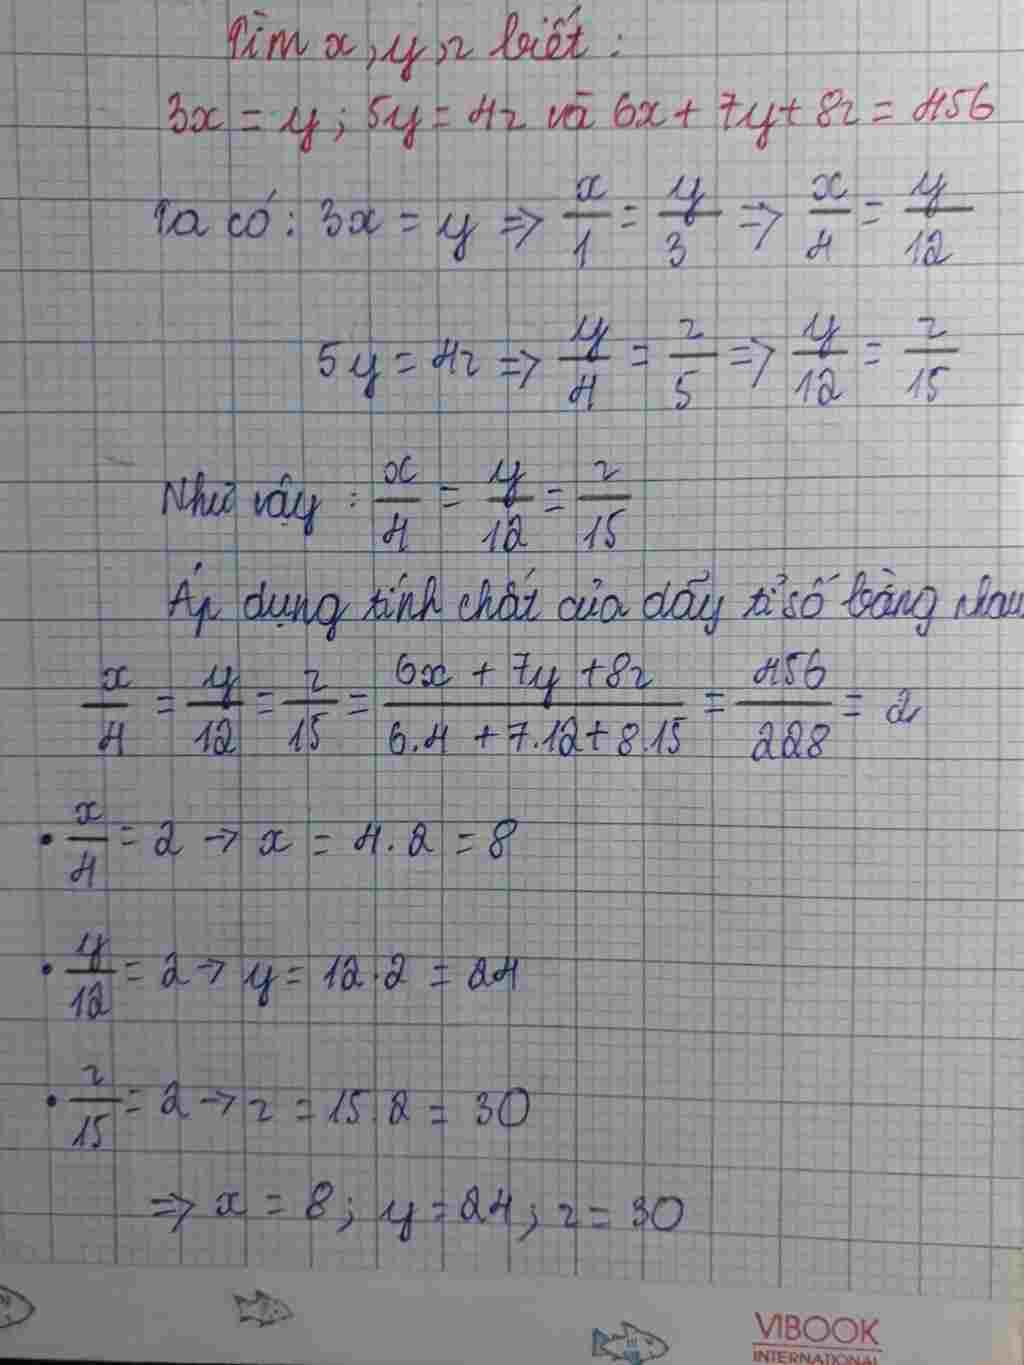 Tìm x, y, z biết :
3x = y ; 5y = 4z và 6x + 7y + 8z = 456
Ta có : 3x = y => x/1 = y/3 => x/4 = y/12
5y = 4z => y/4 = z/5 => y/12 = z/15
Như vậy : x/4 = y/12 = z/15
Áp dụng tính chất của dãy tỉ số bằng nhau
x/4 = y/12 = z/15 = (6x + 7y + 8z)/(6.4 + 7.12 + 8.15) = 456/228 = 2
• x/4 = 2 → x = 4.2 = 8
• y/12 = 2 → y = 12.2 = 24
• z/15 = 2 → z = 15.2 = 30
=> x = 8 ; y = 24 ; z = 30
VIBOOK
INTERNATIONAL